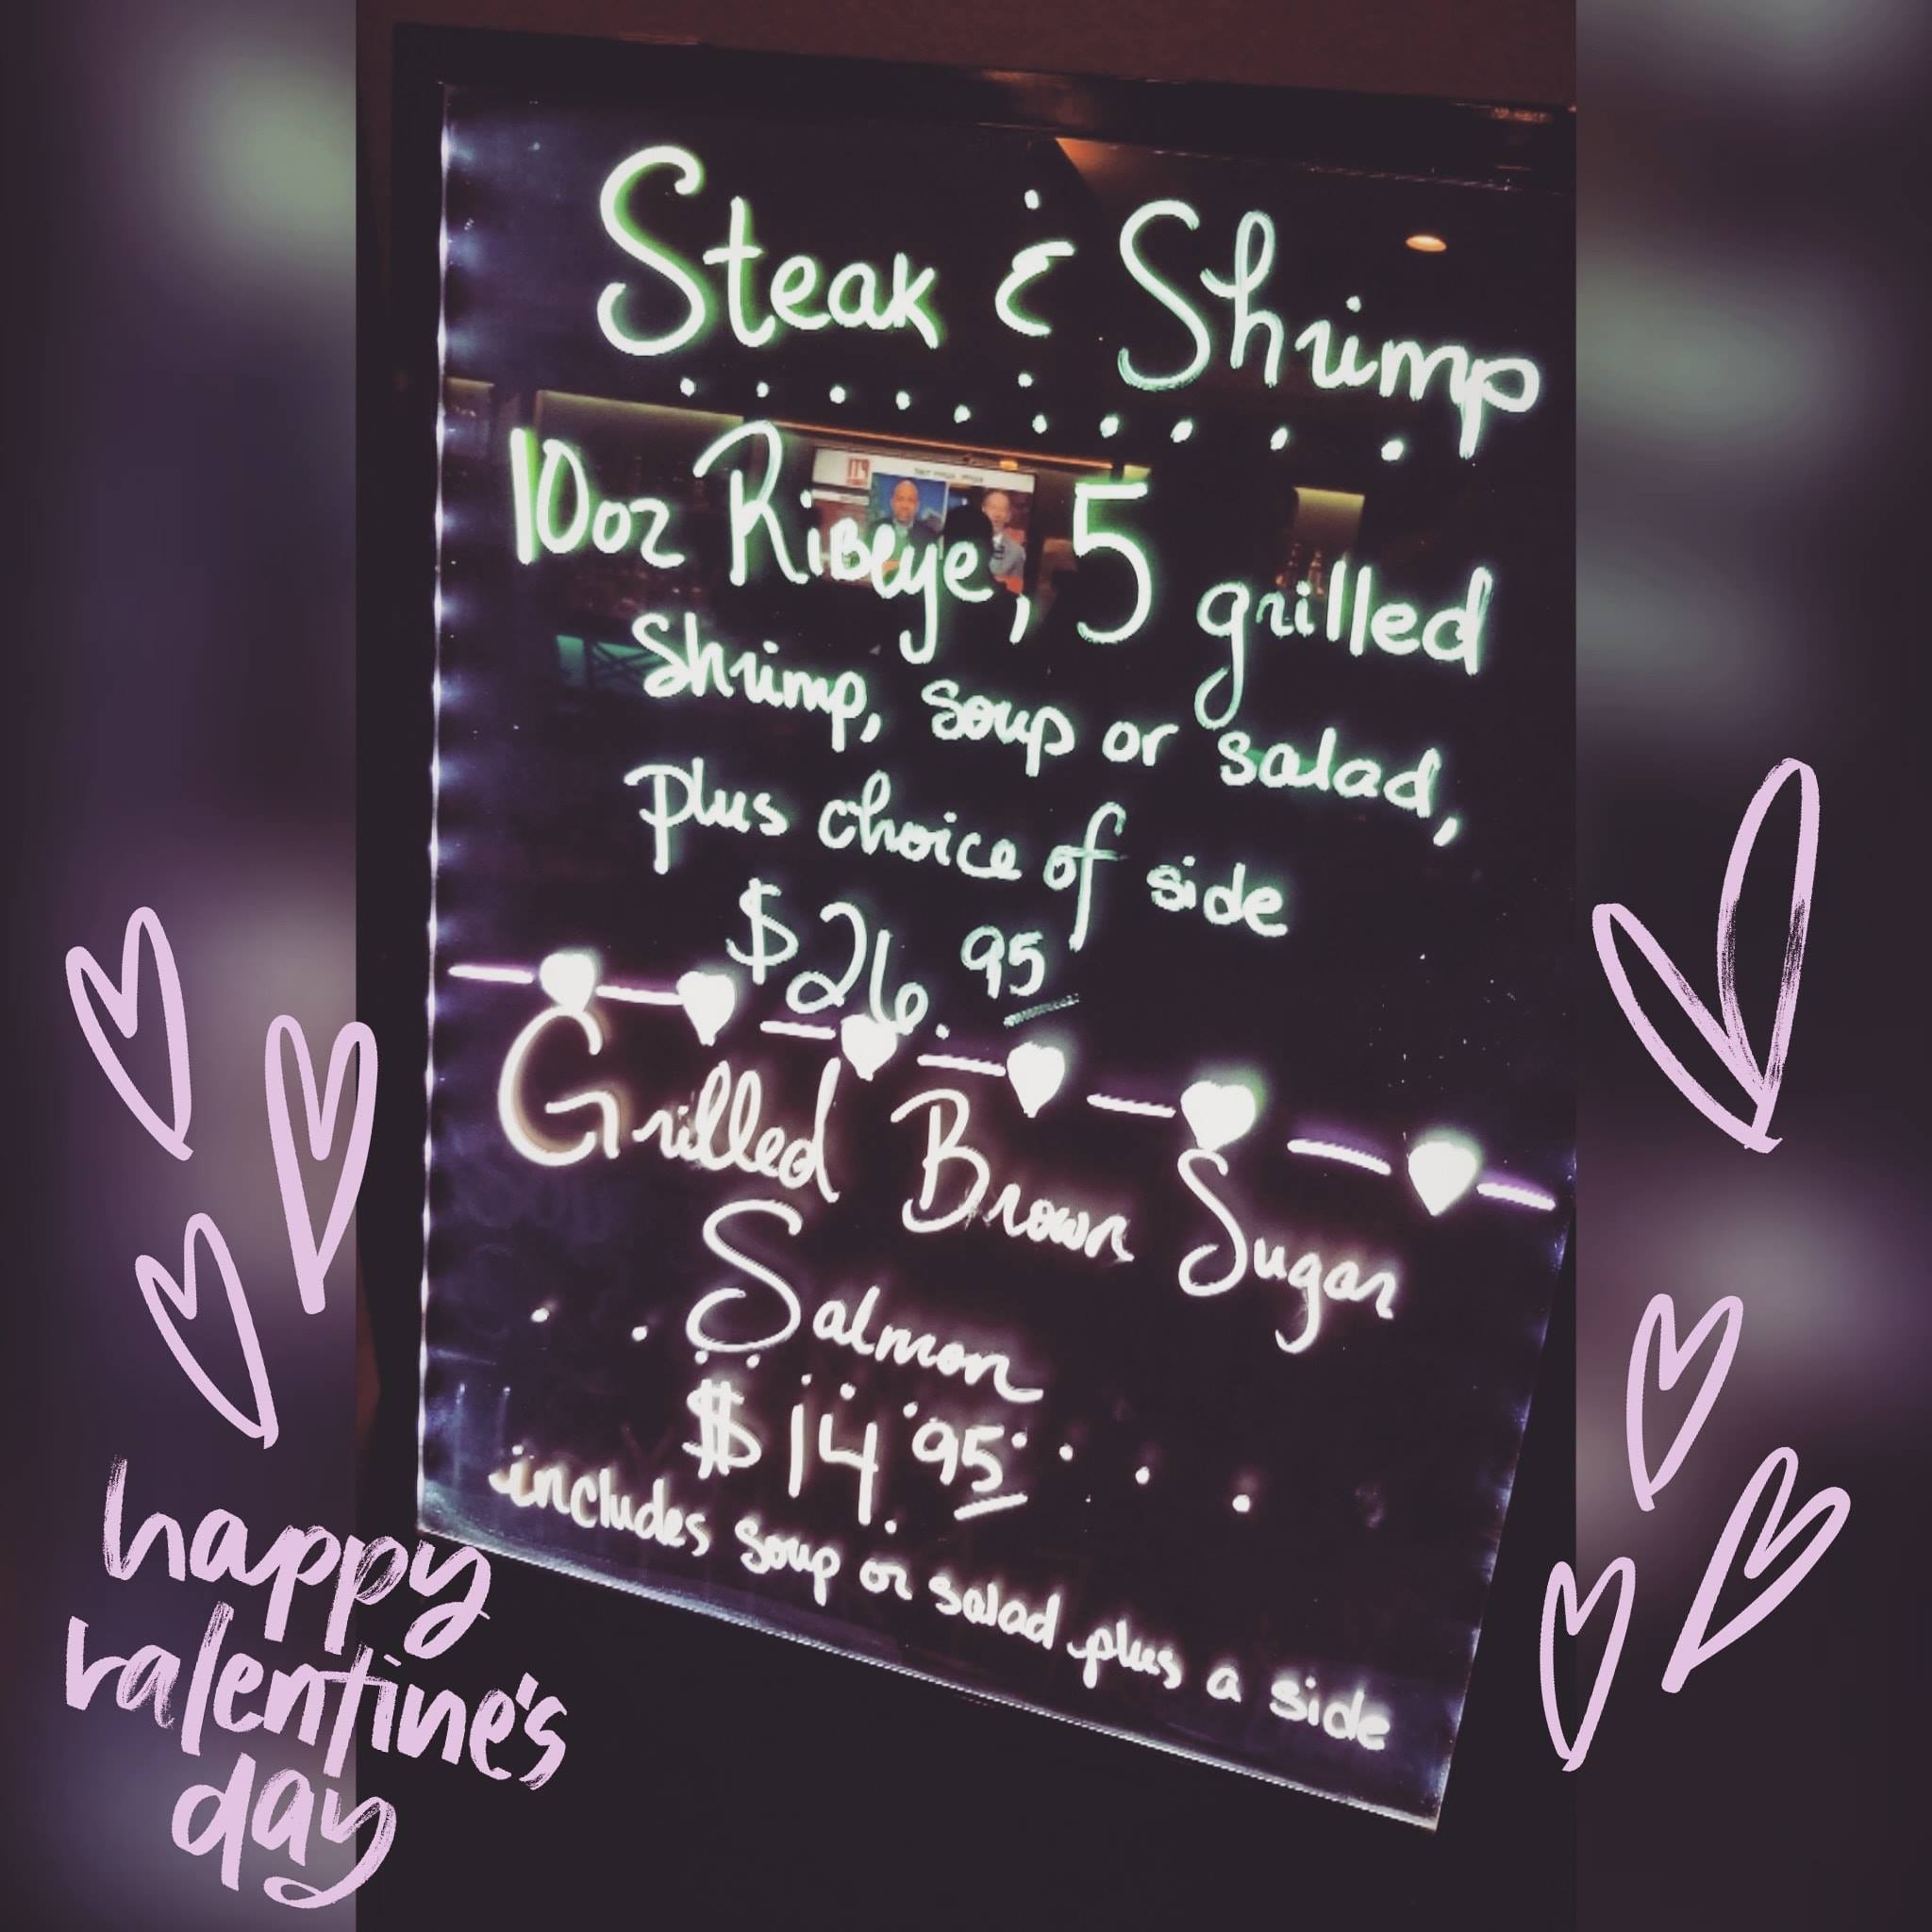 Steak & Shrimp
10oz Ribeye, 5 grilled
Shrimp, soup or salad,
plus choice of side
$26.95
Grilled Brown Sugar
Salmon
$14.95
includes soup or salad plus a side
happy
valentine's
day